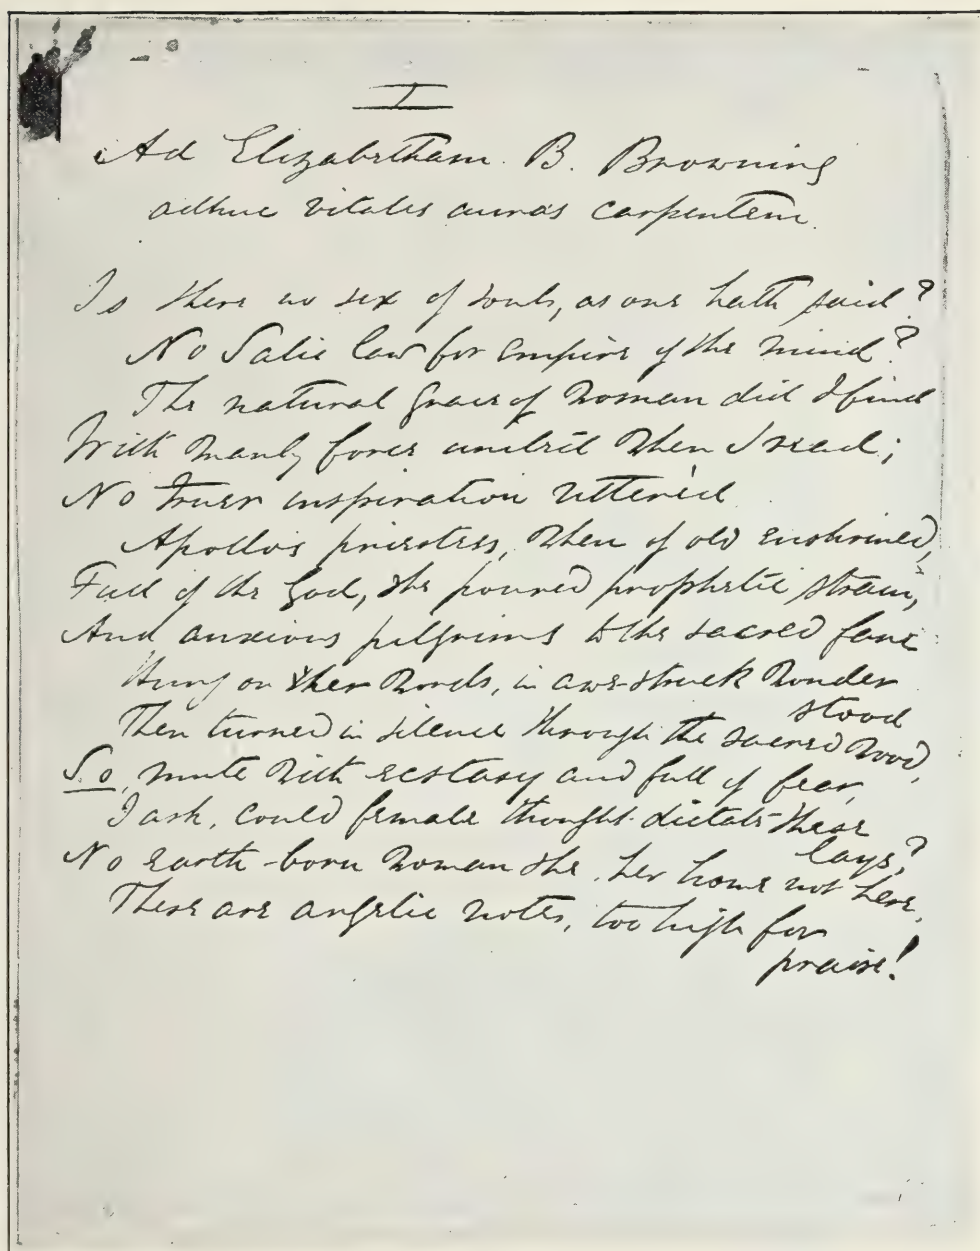 I
Ad Elizabetham B. Browning
adhuc vitales auras carpentem.
Is there no sex of souls, as one hath said?
No Salic law for empire of the mind?
The natural grace of woman did I find
With manly force united when I read;
No truer inspiration utterèd
Apollo's priestess, when of old enshrined,
Full of the God, she poured prophetic strain,
And anxious pilgrims to the sacred fane
Hung on her words, in awe-struck wonder
stood
Then turned in silence through the sacred wood,
So, mute with ecstasy and full of fear,
I ask, could female thought dictate these
lays?
No earth-born woman she, her home not here,
There are angelic notes, too high for
praise!